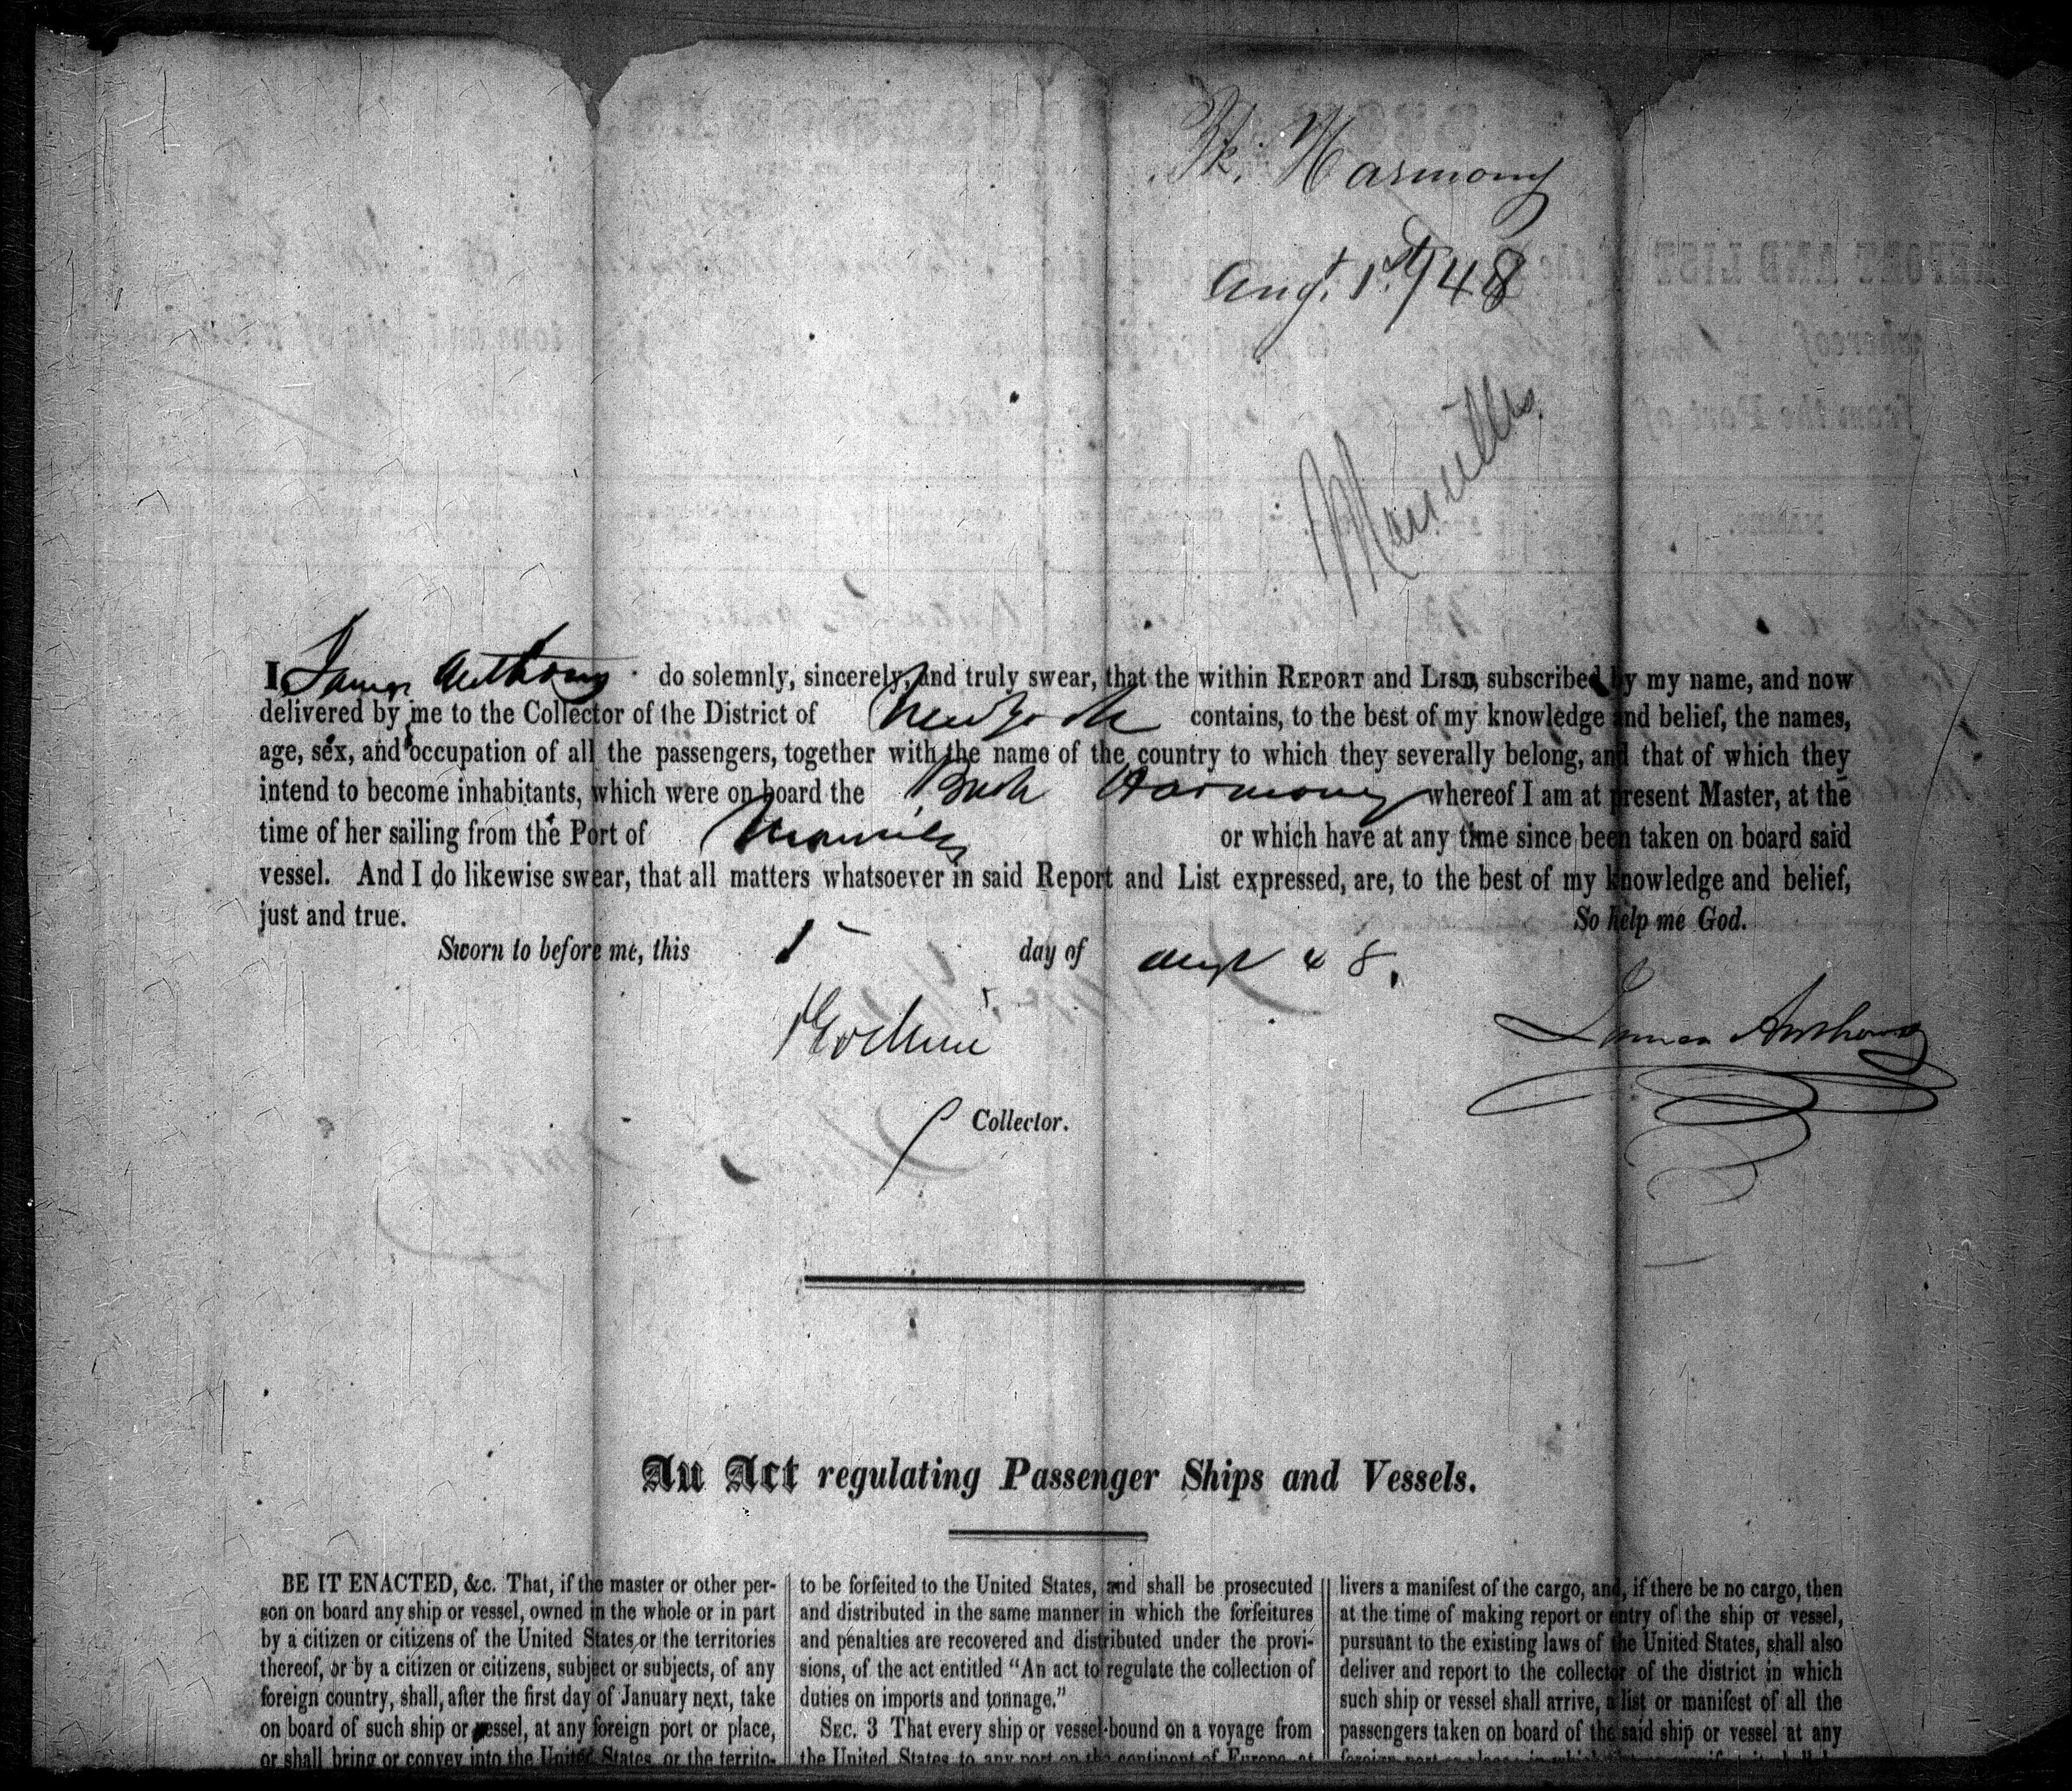 Bk. Harmony
Augt. 1st/48
Marseilles.
I, James Anthony do solemnly, sincerely, and truly swear, that the within REPORT and LIST, subscribed by my name, and now
delivered by me to the Collector of the District of New York contains, to the best of my knowledge and belief, the names,
age, sex, and occupation of all the passengers, together with the name of the country to which they severally belong, and that of which they
intend to become inhabitants, which were on board the Bark Harmony whereof I am at present Master, at the
time of her sailing from the Port of Marseilles or which have at any time since been taken on board said
vessel. And I do likewise swear, that all matters whatsoever in said Report and List expressed, are, to the best of my knowledge and belief,
just and true. So help me God.
Sworn to before me, this 1 day of Augt 48.
James Anthony
Collector.
An Act regulating Passenger Ships and Vessels.
BE IT ENACTED, &c. That, if the master or other per-
son on board any ship or vessel, owned in the whole or in part
by a citizen or citizens of the United States or the territories
thereof, or by a citizen or citizens, subject or subjects, of any
foreign country, shall, after the first day of January next, take
on board of such ship or vessel, at any foreign port or place,
or shall bring or convey into the United States, or the territo-
to be forfeited to the United States, and shall be prosecuted
and distributed in the same manner in which the forfeitures
and penalties are recovered and distributed under the provi-
sions, of the act entitled "An act to regulate the collection of
duties on imports and tonnage."
SEC. 3 That every ship or vessel bound on a voyage from
the United States to any port on the continent of Europe, at
livers a manifest of the cargo, and, if there be no cargo, then
at the time of making report or entry of the ship or vessel,
pursuant to the existing laws of the United States, shall also
deliver and report to the collector of the district in which
such ship or vessel shall arrive, a list or manifest of all the
passengers taken on board of the said ship or vessel at any